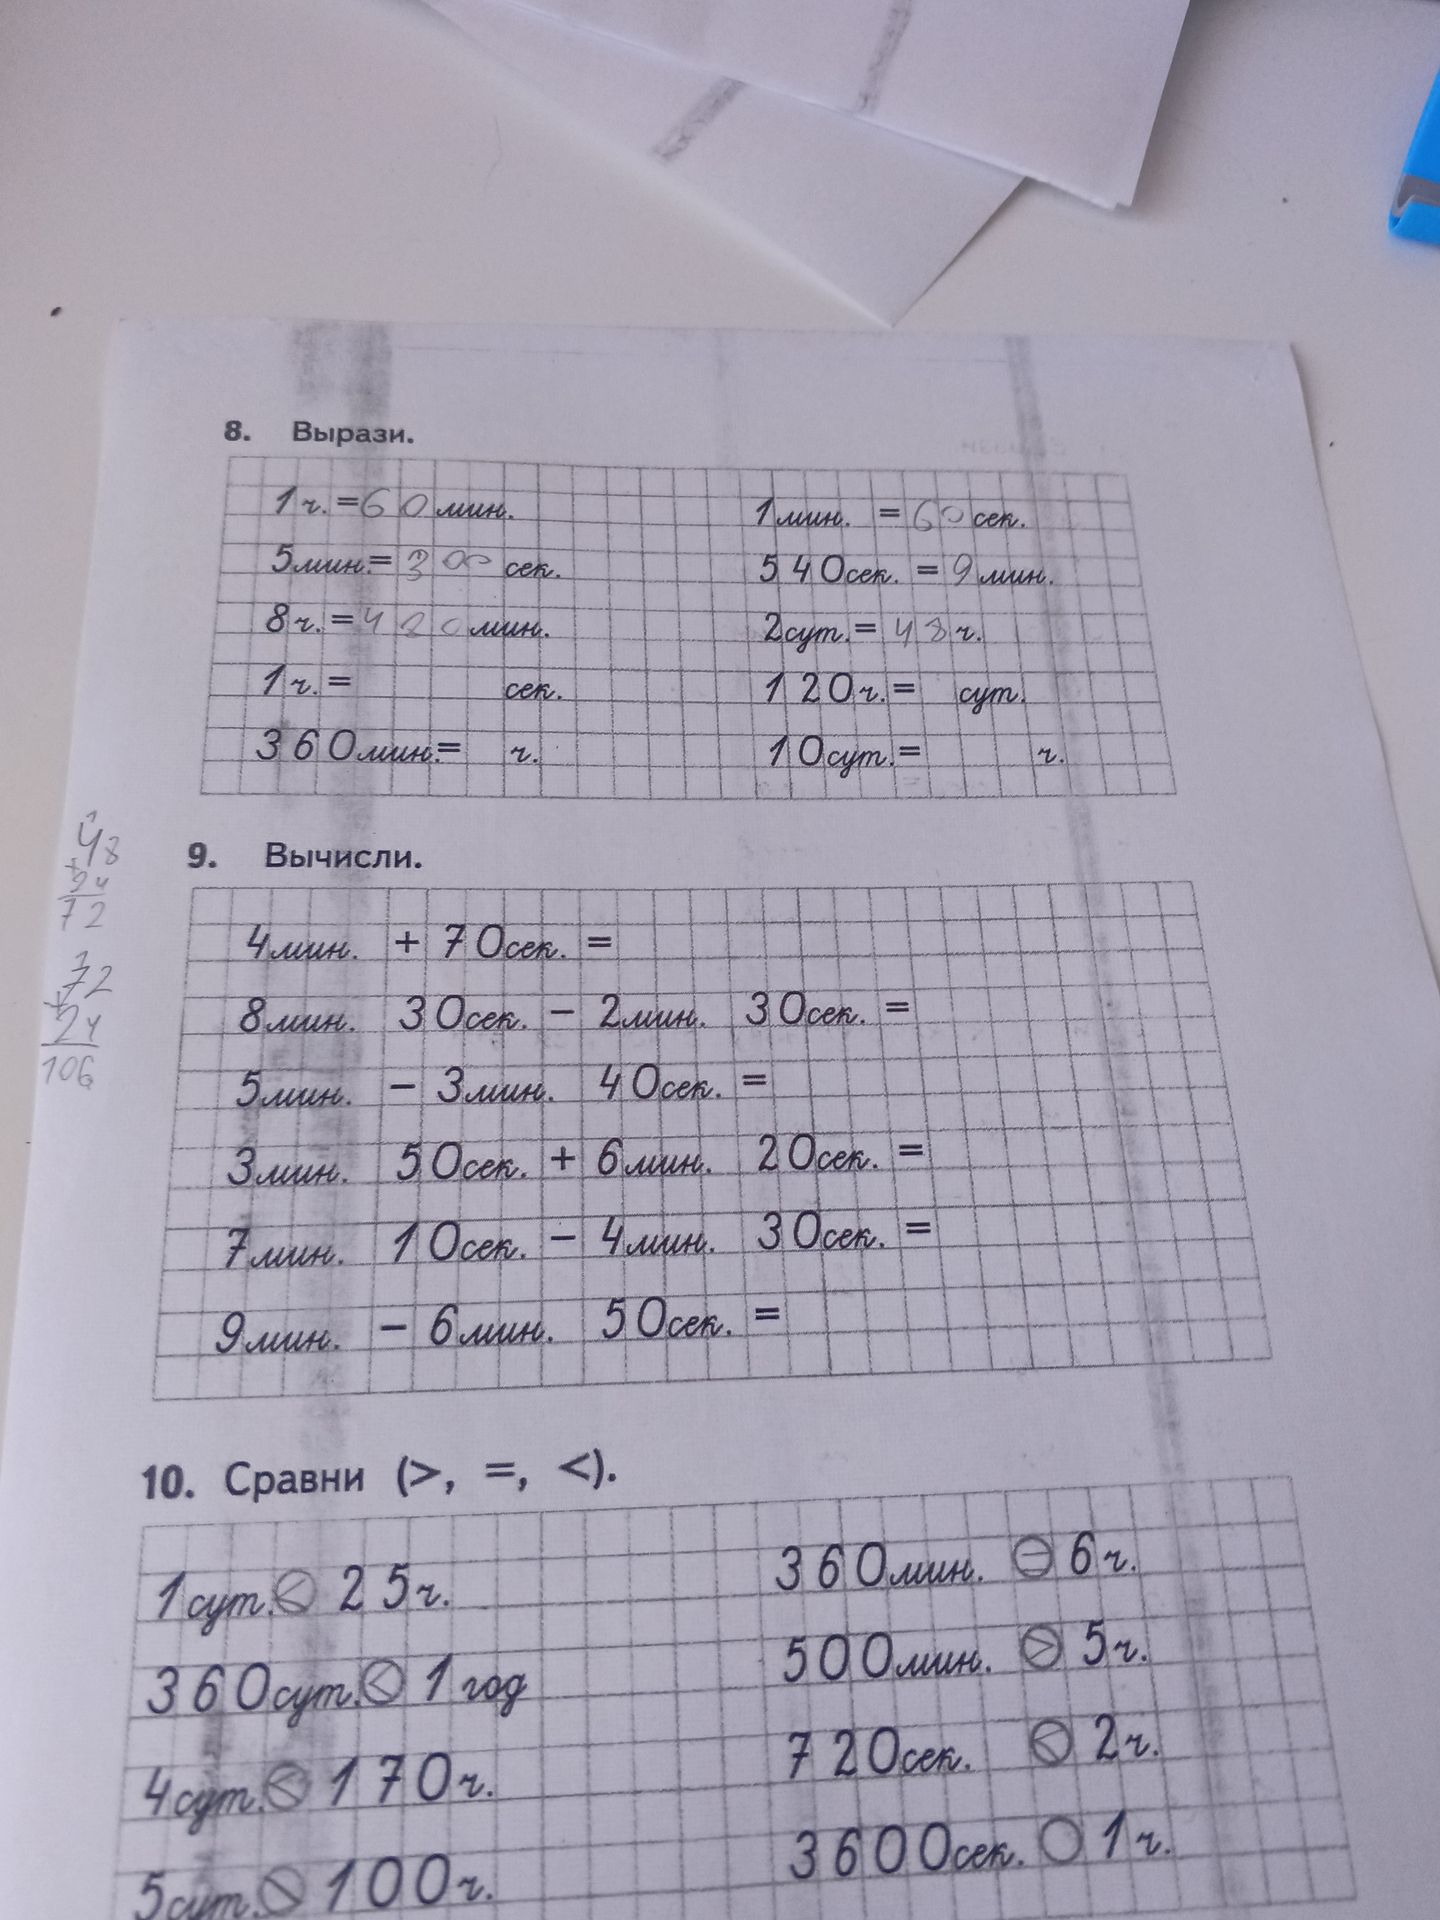 8. Вырази.
1ч.=60мин. 1мин. =60сек.
5мин.=300 сек. 540сек. =9мин.
8ч.=420мин. 2сут.=48ч.
1ч.= сек. 120ч.= сут.
360мин.= ч. 10сут.= ч.
48
+
24
72
72
+
24
106
9. Вычисли.
4мин. + 70сек. =
8мин. 30сек. − 2мин. 30сек. =
5мин. − 3мин. 40сек. =
3мин. 50сек. + 6мин. 20сек. =
7мин. 10сек. − 4мин. 30сек. =
9мин. − 6мин. 50сек. =
10. Сравни (>, =, <).
1сут. < 25ч. 360мин. = 6ч.
360сут. < 1год 500мин. > 5ч.
4сут. < 170ч. 720сек. < 2ч.
5сут. 100ч. 3600сек. 1ч.